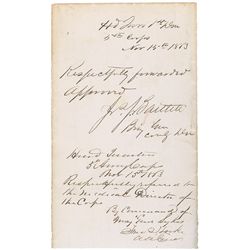 Hd Qrs 1st Div
5th Corps
Nov 15th 1863
Respectfully forwarded
Approved
Jos. J. Bartlett
Brig Gen
Comdg Div
Head Quarters
5th Army Corps
Nov 15 1863
Respectfully referred to
the Medical Director of
the Corps
By Command of
Maj Gen Sykes
A.A.G.